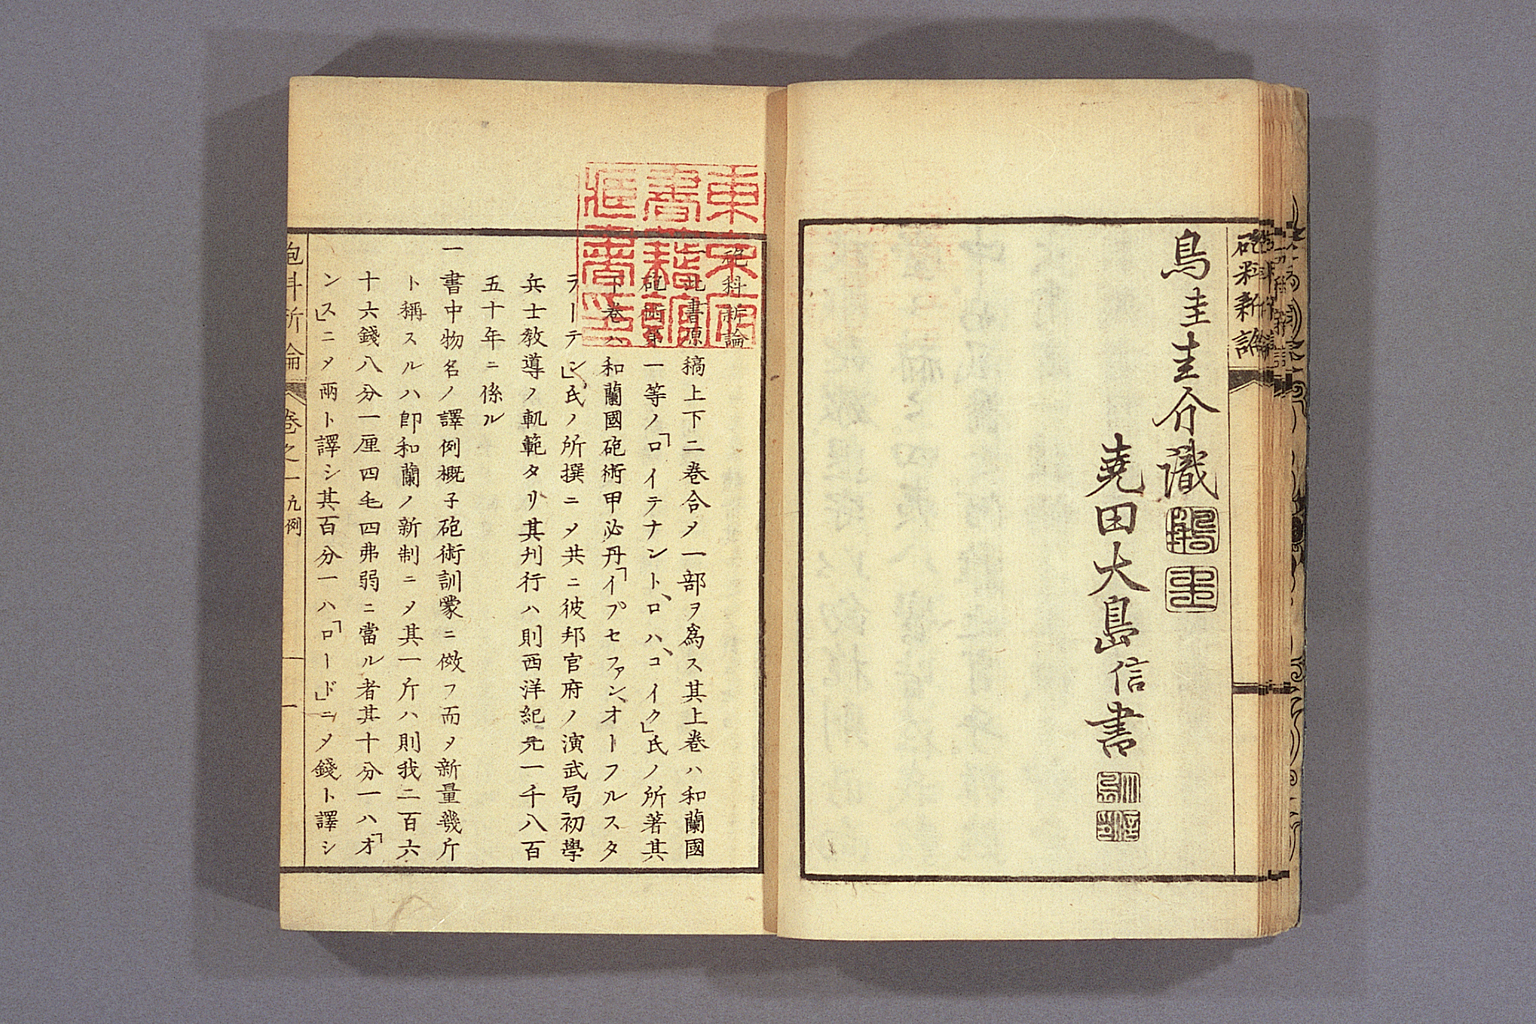 鳥圭圭介識
堯田大島信書
砲科新論
東京府
書籍館
蔵書印
砲科新論
一此書原稿上下二巻合〆一部ヲ為ス其上巻ハ和蘭國
砲術第一等ノ「ロイテナント、ロハ、コイク」氏ノ所著其
下巻ハ和蘭國砲術甲必丹「イプセファン、オールフルスタ
ラーテン」氏ノ所撰ニ〆共ニ彼邦官府ノ演武局初學
兵士教導ノ軌範タリ其刋行ハ則西洋紀元一千八百
五十年ニ係ル
一書中物名ノ譯例概子砲術訓蒙ニ倣フ而〆新量幾斤
ト稱スルハ即和蘭ノ新制ニ〆其一斤ハ則我二百六
十六錢八分一厘四毛四弗弱ニ當ル者其十分一ハ「オ
ンス」ニ〆兩ト譯シ其百分一ハ「ロード」ニ〆錢ト譯シ
砲科新論 巻之一 凡例 一